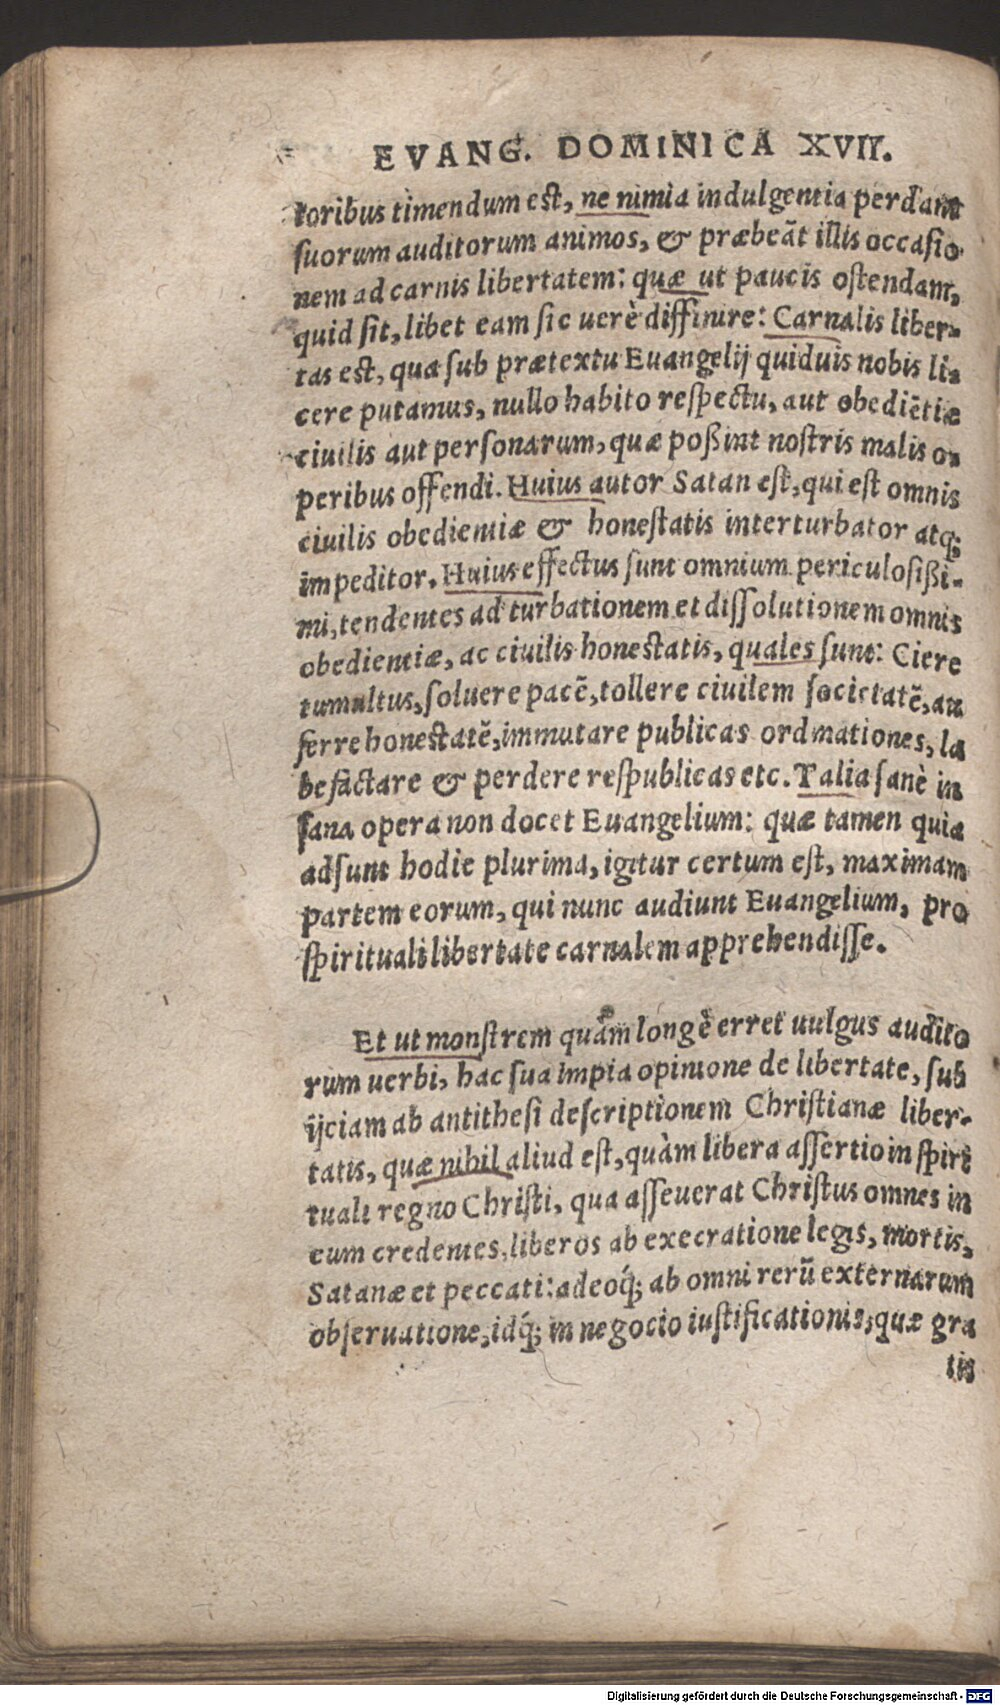 EVANG. DOMINICA XVII.
toribus timendum est, ne nimia indulgentia perdant
suorum auditorum animos, & præbeāt illis occasio
nem ad carnis libertatem: quæ ut paucis ostendam,
quid sit, libet eam sic uerè diffinire: Carnalis liber-
tas est, qua sub prætextu Euangelij quiduis nobis li-
cere putamus, nullo habito respectu, aut obediētiæ
ciuilis aut personarum, quæ poßint nostris malis o-
peribus offendi. Huius autor Satan est, qui est omnis
ciuilis obedientiæ & honestatis interturbator atq;
impeditor. Huius effectus sunt omnium periculosißi-
mi, tendentes ad turbationem et dissolutionem omnis
obedientiæ, ac ciuilis honestatis, quales sunt: Ciere
tumultus, soluere pacē, tollere ciuilem societatē, au
ferre honestatē, immutare publicas ordinationes, la
befactare & perdere respublicas etc. Talia sanè in
sana opera non docet Euangelium: quæ tamen quia
adsunt hodie plurima, igitur certum est, maximam
partem eorum, qui nunc audiunt Euangelium, pro
spirituali libertate carnalem apprehendisse.
Et ut monstrem quàm longè erret uulgus audito
rum uerbi, hac sua impia opinione de libertate, sub
ijciam ab antithesi descriptionem Christianæ liber-
tatis, quæ nihil aliud est, quàm libera assertio in spiri
tuali regno Christi, qua asseuerat Christus omnes in
eum credentes, liberos ab execratione legis, mortis,
Satanæ et peccati: adeoq́; ab omni rerū externarum
obseruatione, idq́; in negocio iustificationis, quæ gra
tis
Digitalisierung gefördert durch die Deutsche Forschungsgemeinschaft - DFG